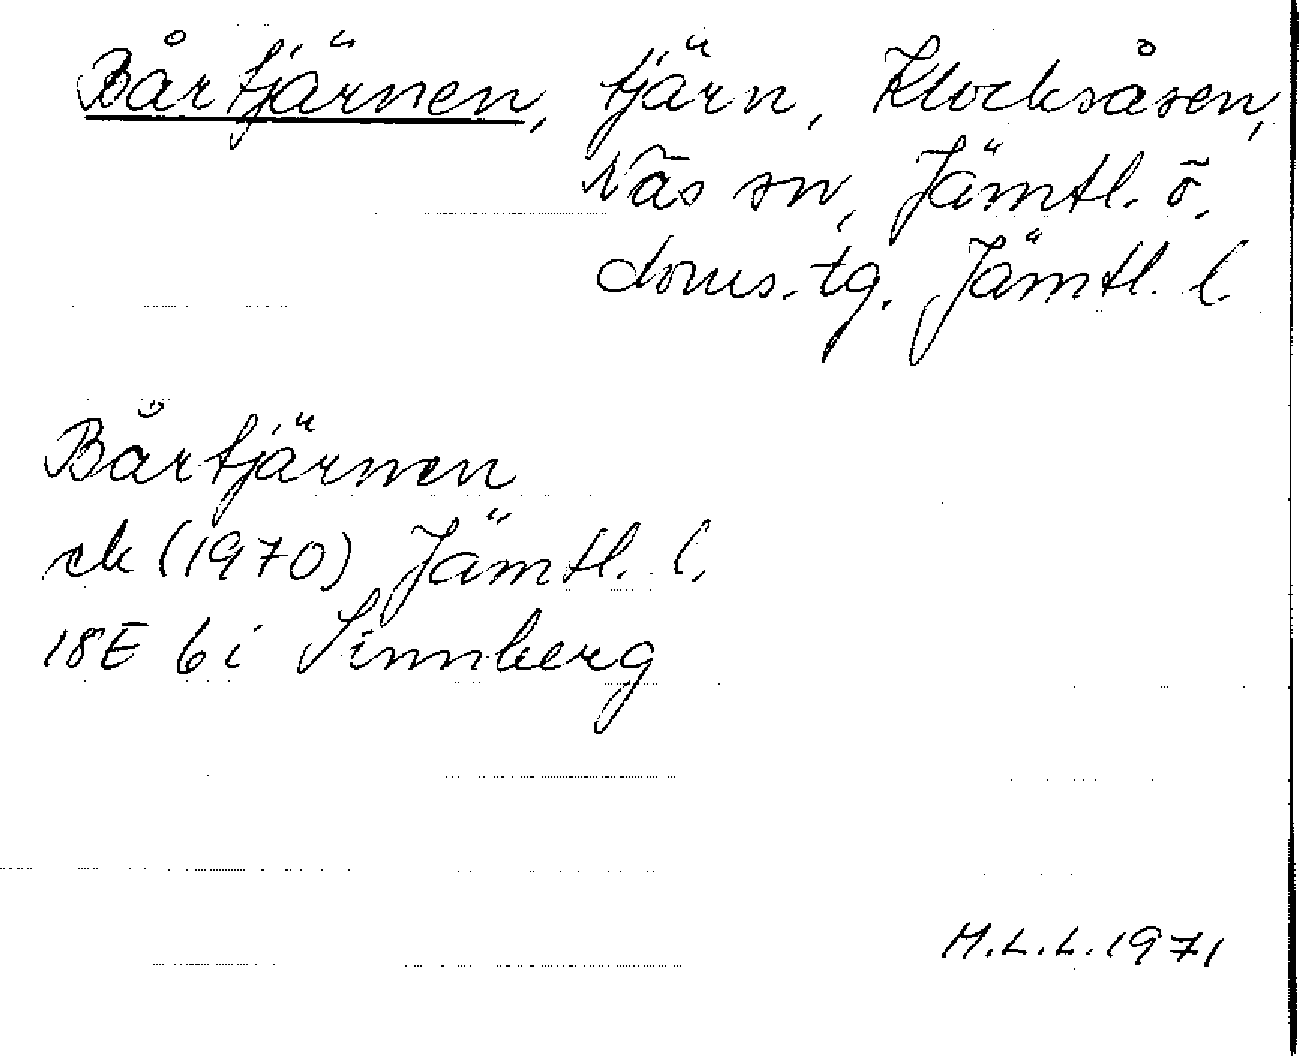 Bårtjärnen, tjärn, Klocksåsen,
Näs sn, Jämtl. ö.
doms.tg. Jämtl. l.
Bårtjärnen
ek (1970) Jämtl. l.
18E 6i Sinnberg
M.L.L. 1971